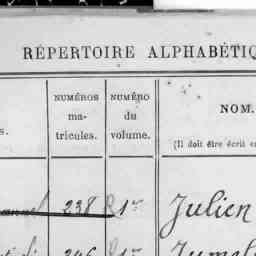 RÉPERTOIRE ALPHABÉTIQ
NUMÉROS ma- tricules.
NUMÉRO du volume.
NOM.
s.
(Il doit être écrit e
238 R 1er Julien
246 R 1er